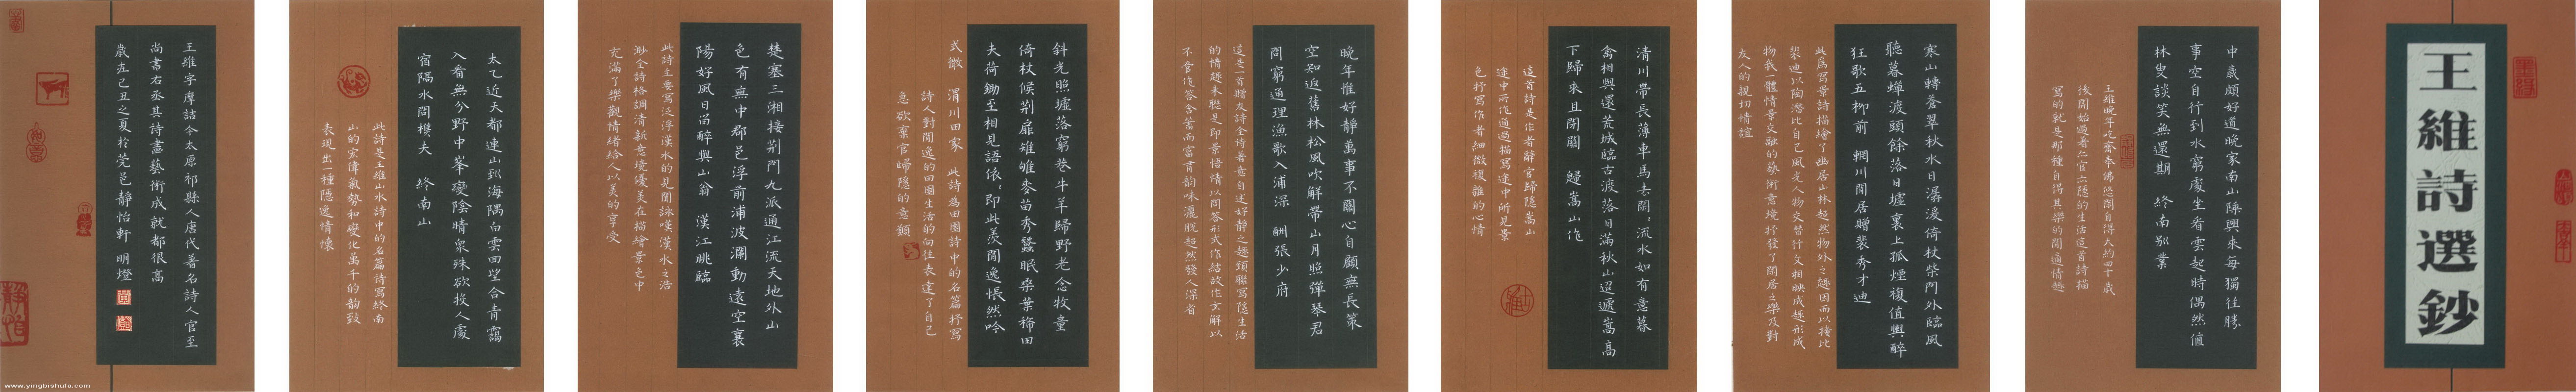 王維詩選鈔
中歲頗好道晚家南山陲興來每獨往勝
事空自行到水窮處坐看雲起時偶然值
林叟談笑無還期　終南別業
王維晚年吃齋奉佛悠閑自得大約四十歲
後開始過著亦官亦隱的生活這首詩描
寫的就是那種自得其樂的閑適情趣
寒山轉蒼翠秋水日潺湲倚杖柴門外臨風
聽暮蟬渡頭餘落日墟裏上孤煙複值輿醉
狂歌五柳前　輞川閑居贈裴秀才迪
此爲寫景詩描繪了幽居山林超然物外之趣因而以接比
裴迪以陶潛比自己風光人物交替行文相映成趣形成
物我一體情景交融的藝術意境抒發了閑居之樂及對
友人的親切情誼
清川帶長薄車馬去閑閑流水如有意暮
禽相與還荒城臨古渡落日滿秋山迢遞嵩高
下歸來且閉關　歸嵩山作
這首詩是作者辭官歸隱嵩山
途中所作通過描寫途中所見景
色抒寫作者細微複雜的心情
晚年惟好靜萬事不關心自顧無長策
空知返舊林松風吹解帶山月照彈琴君
問窮通理漁歌入浦深　酬張少府
這是一首贈友詩全詩著意自述好靜之趣頸聯寫隱生活
的情趣末聯是即景悟情以問答形式作結故作玄解以
不答作答含蓄而富書韵味灑脫超然發人深省
斜光照墟落窮巷牛羊歸野老念牧童
倚杖候荊扉雉雊麥苗秀蠶眠桑葉稀田
夫荷鋤至相見語依依即此羨閑逸悵然吟
式微　渭川田家　此詩爲田園詩中的名篇抒寫
詩人對閑逸的田園生活的向往表達了自己
急欲棄官歸隱的意願
楚塞三湘接荊門九派通江流天地外山
色有無中郡邑浮前浦波瀾動遠空襄
陽好風日留醉與山翁　漢江眺臨
此詩主要寫泛浮漢水的見聞詠嘆漢水之浩
渺全詩格調清新意境優美在描繪景色中
充滿了樂觀情緒給人以美的享受
太乙近天都連山到海隅白雲回望合青靄
入看無分野中峯變陰晴衆殊欲投人處
宿隔水問樵夫　終南山
此詩是王維山水詩中的名篇詩寫終南
山的宏偉氣勢和變化萬千的韵致
表現出一種隱逸情懷
王維字摩詰今太原祁縣人唐代著名詩人官至
尚書右丞其詩畫藝術成就都很高
歲在己丑之夏於莞邑靜怡軒　明燈
www.yingbishufa.com